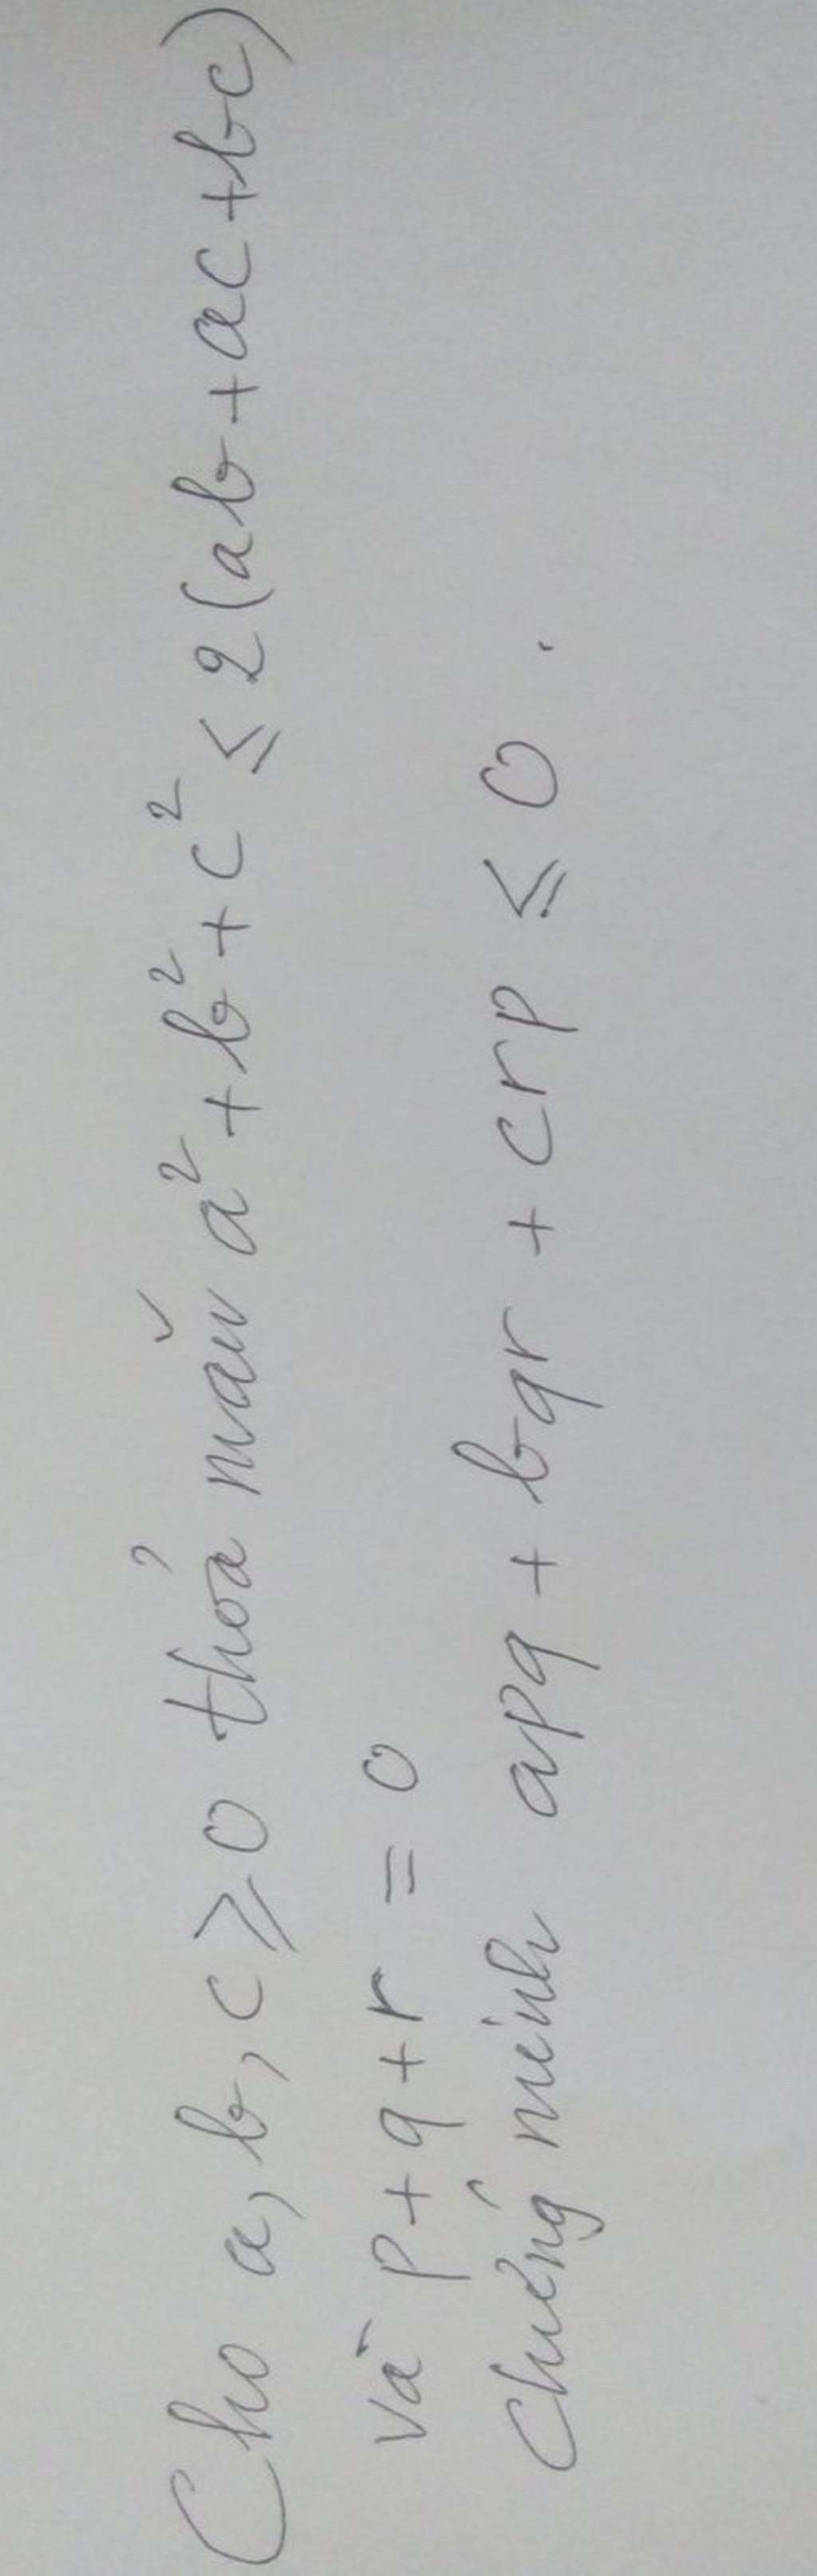 Cho a, b, c ⩾ 0 thỏa mãn a² + b² + c² ≤ 2(ab + ac + bc)
Và p + q + r = 0
Chứng minh apq + bqr + crp ≤ 0.